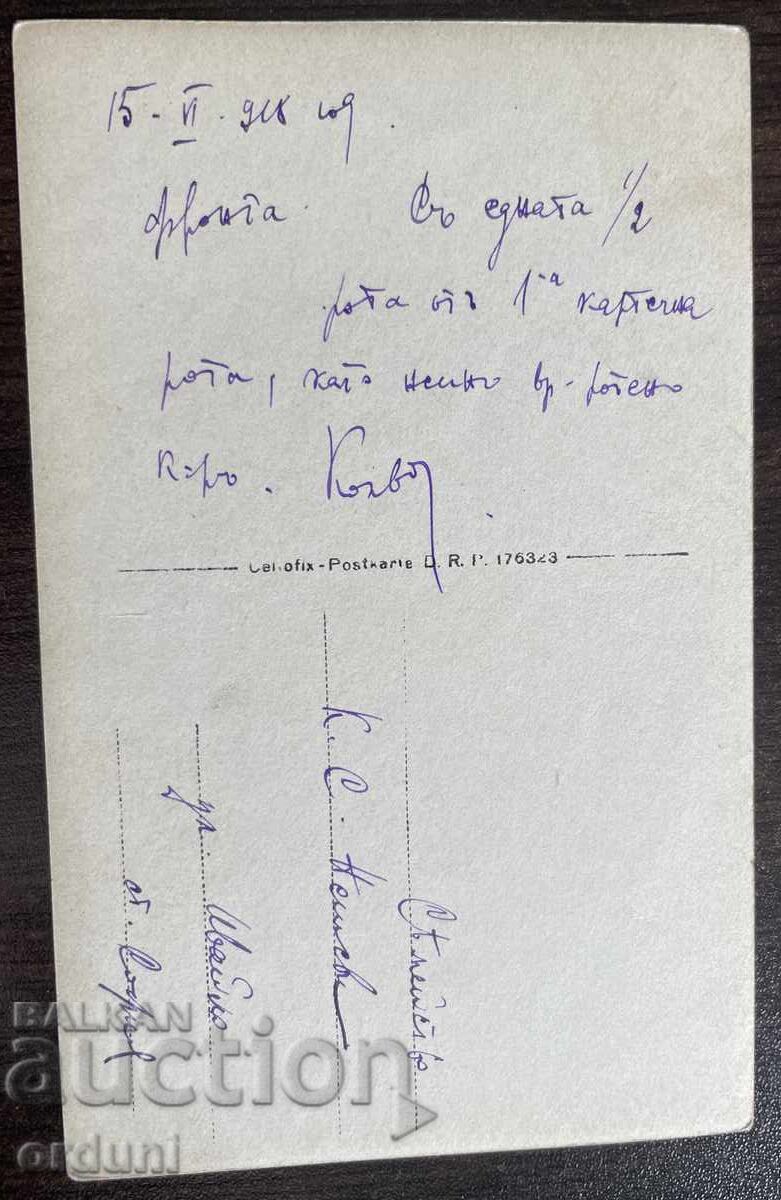 15 - VI 918 год.
Фронта. Съ едната 1/2
рота отъ 1-а картечна
рота, като неинъ вр - ротенъ
к-ръ.
Celofix - Postkarte D. R. P. 176323
Сѣмейство
К. С.
ул. Ивайло
ст. София
BALKAN
auction
orduni